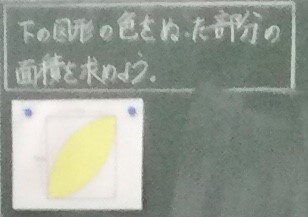 下の図形の色をぬった部分の
面積を求めよう。